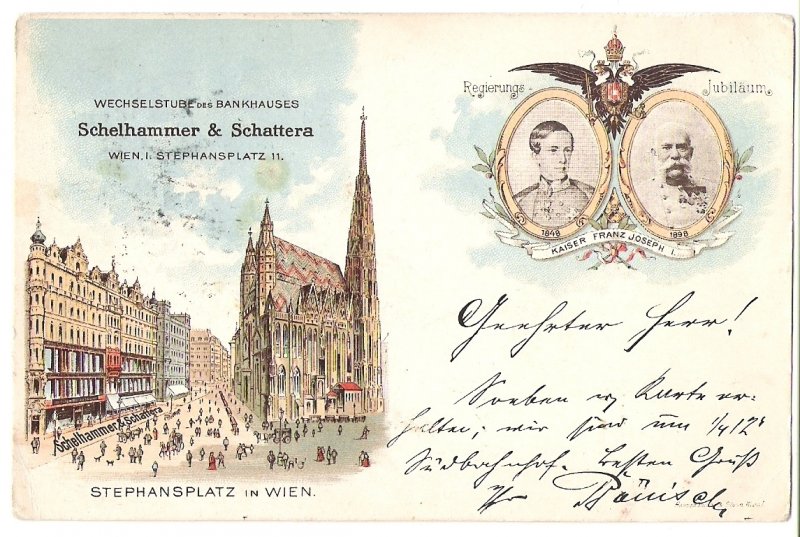 WECHSELSTUBE DES BANKHAUSES
Schelhammer & Schattera
WIEN, I. STEPHANSPLATZ 11.
Schelhammer & Schattera
STEPHANSPLATZ IN WIEN.
Regierungs- Jubiläum
1848 1898
KAISER FRANZ JOSEPH I.
Geehrter Herr!
Soeben Karte er-
halten; wir sind um 1/4 12h
Südbahnhof. Besten Gruß
Ihr